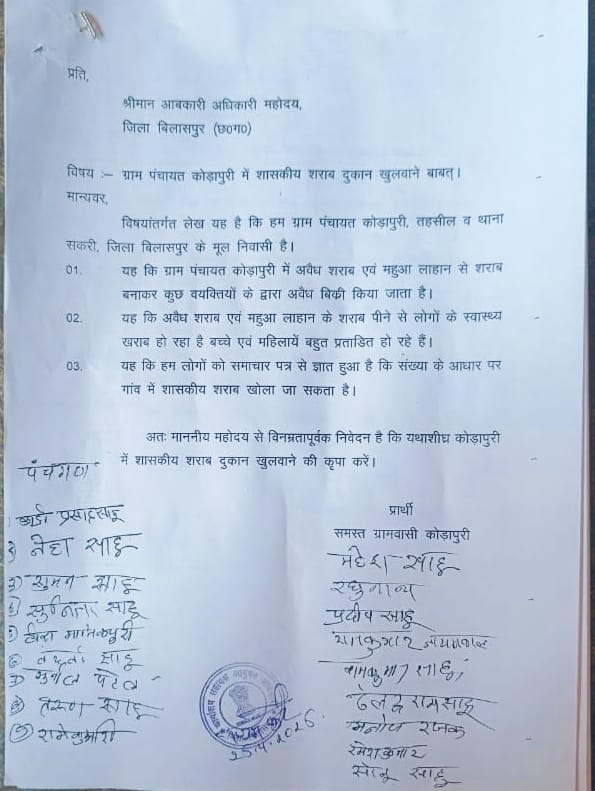 प्रति,
श्रीमान आबकारी अधिकारी महोदय,
जिला बिलासपुर (छ०ग०)
विषय :– ग्राम पंचायत कोड़ापुरी में शासकीय शराब दुकान खुलवाने बाबत्।
मान्यवर,
विषयांतर्गत लेख यह है कि हम ग्राम पंचायत कोड़ापुरी, तहसील व थाना
सकरी, जिला बिलासपुर के मूल निवासी है।
01. यह कि ग्राम पंचायत कोड़ापुरी में अवैध शराब एवं महुआ लाहान से शराब
बनाकर कुछ वयक्तियों के द्वारा अवैध बिक्री किया जाता है।
02. यह कि अवैध शराब एवं महुआ लाहान के शराब पीने से लोगों के स्वास्थ्य
खराब हो रहा है बच्चे एवं महिलायें बहुत प्रताडित हो रहे हैं।
03. यह कि हम लोगों को समाचार पत्र से ज्ञात हुआ है कि संख्या के आधार पर
गांव में शासकीय शराब खोला जा सकता है।
अतः माननीय महोदय से विनम्रतापूर्वक निवेदन है कि यथाशीघ्र कोड़ापुरी
में शासकीय शराब दुकान खुलवाने की कृपा करें।
पंचगण
प्रसाद साहू
नेहा साहू
सुमन साहू
सुनिता साहू
मानिकपुरी
साहू
पटेल
साहू
रामेकुमारी
प्रार्थी
समस्त ग्रामवासी कोड़ापुरी
महेश साहू
रघुनाथ
प्रदीप साहू
रामकुमार साहू
साहू
मनोज रजक
रमेश कुमार
सोनू साहू